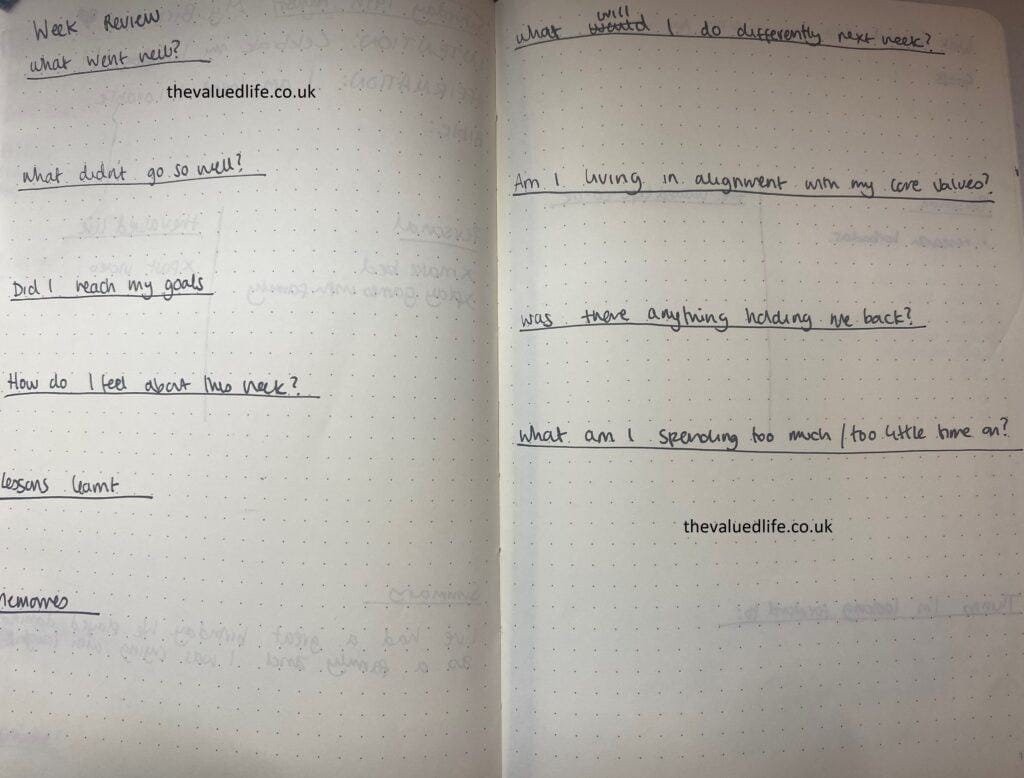 Week Review
What went well?
thevaluedlife.co.uk
what didn't go so well?
Did I reach my goals
How do I feel about this week?
lessons learnt
Memories
What would will I do differently next week?
Am I living in alignment with my core values?
was there anything holding me back?
What am I spending too much / too little time on?
thevaluedlife.co.uk